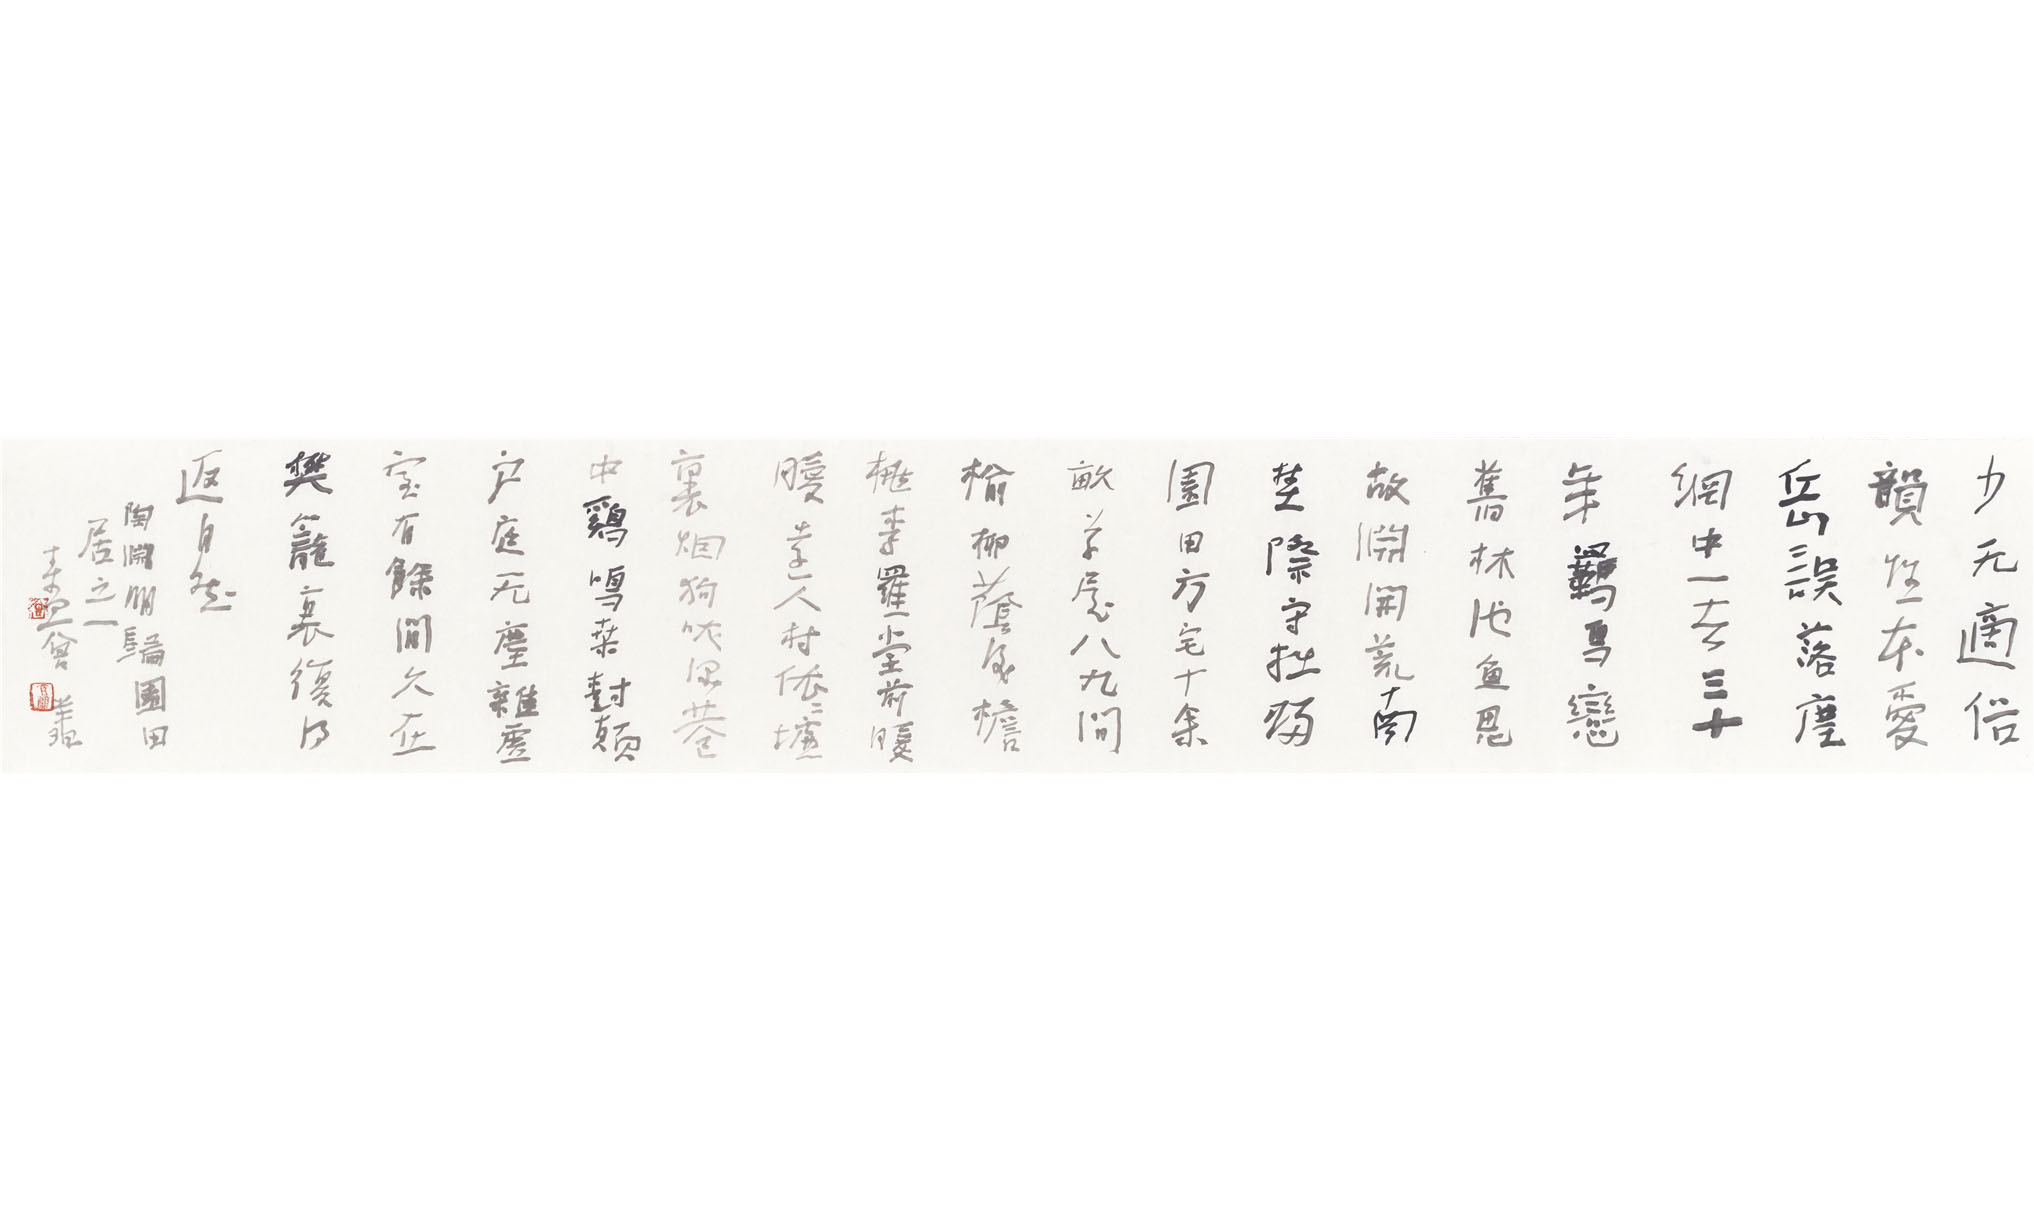 少无適俗
韻性本愛
丘山誤落塵
網中一去三十
年羈鳥戀
舊林池鱼思
故淵開荒南
埜際守拙歸
園田方宅十余
畝草屋八九間
榆柳蔭後檐
桃李羅堂前曖
曖遠人村依〻墟
裏烟狗吠深巷
中鷄鳴桑樹顛
户庭无塵雜虚
室有餘閒久在
樊籠裏復得
返自然
陶淵明歸園田
居之一
辛丑曾翔